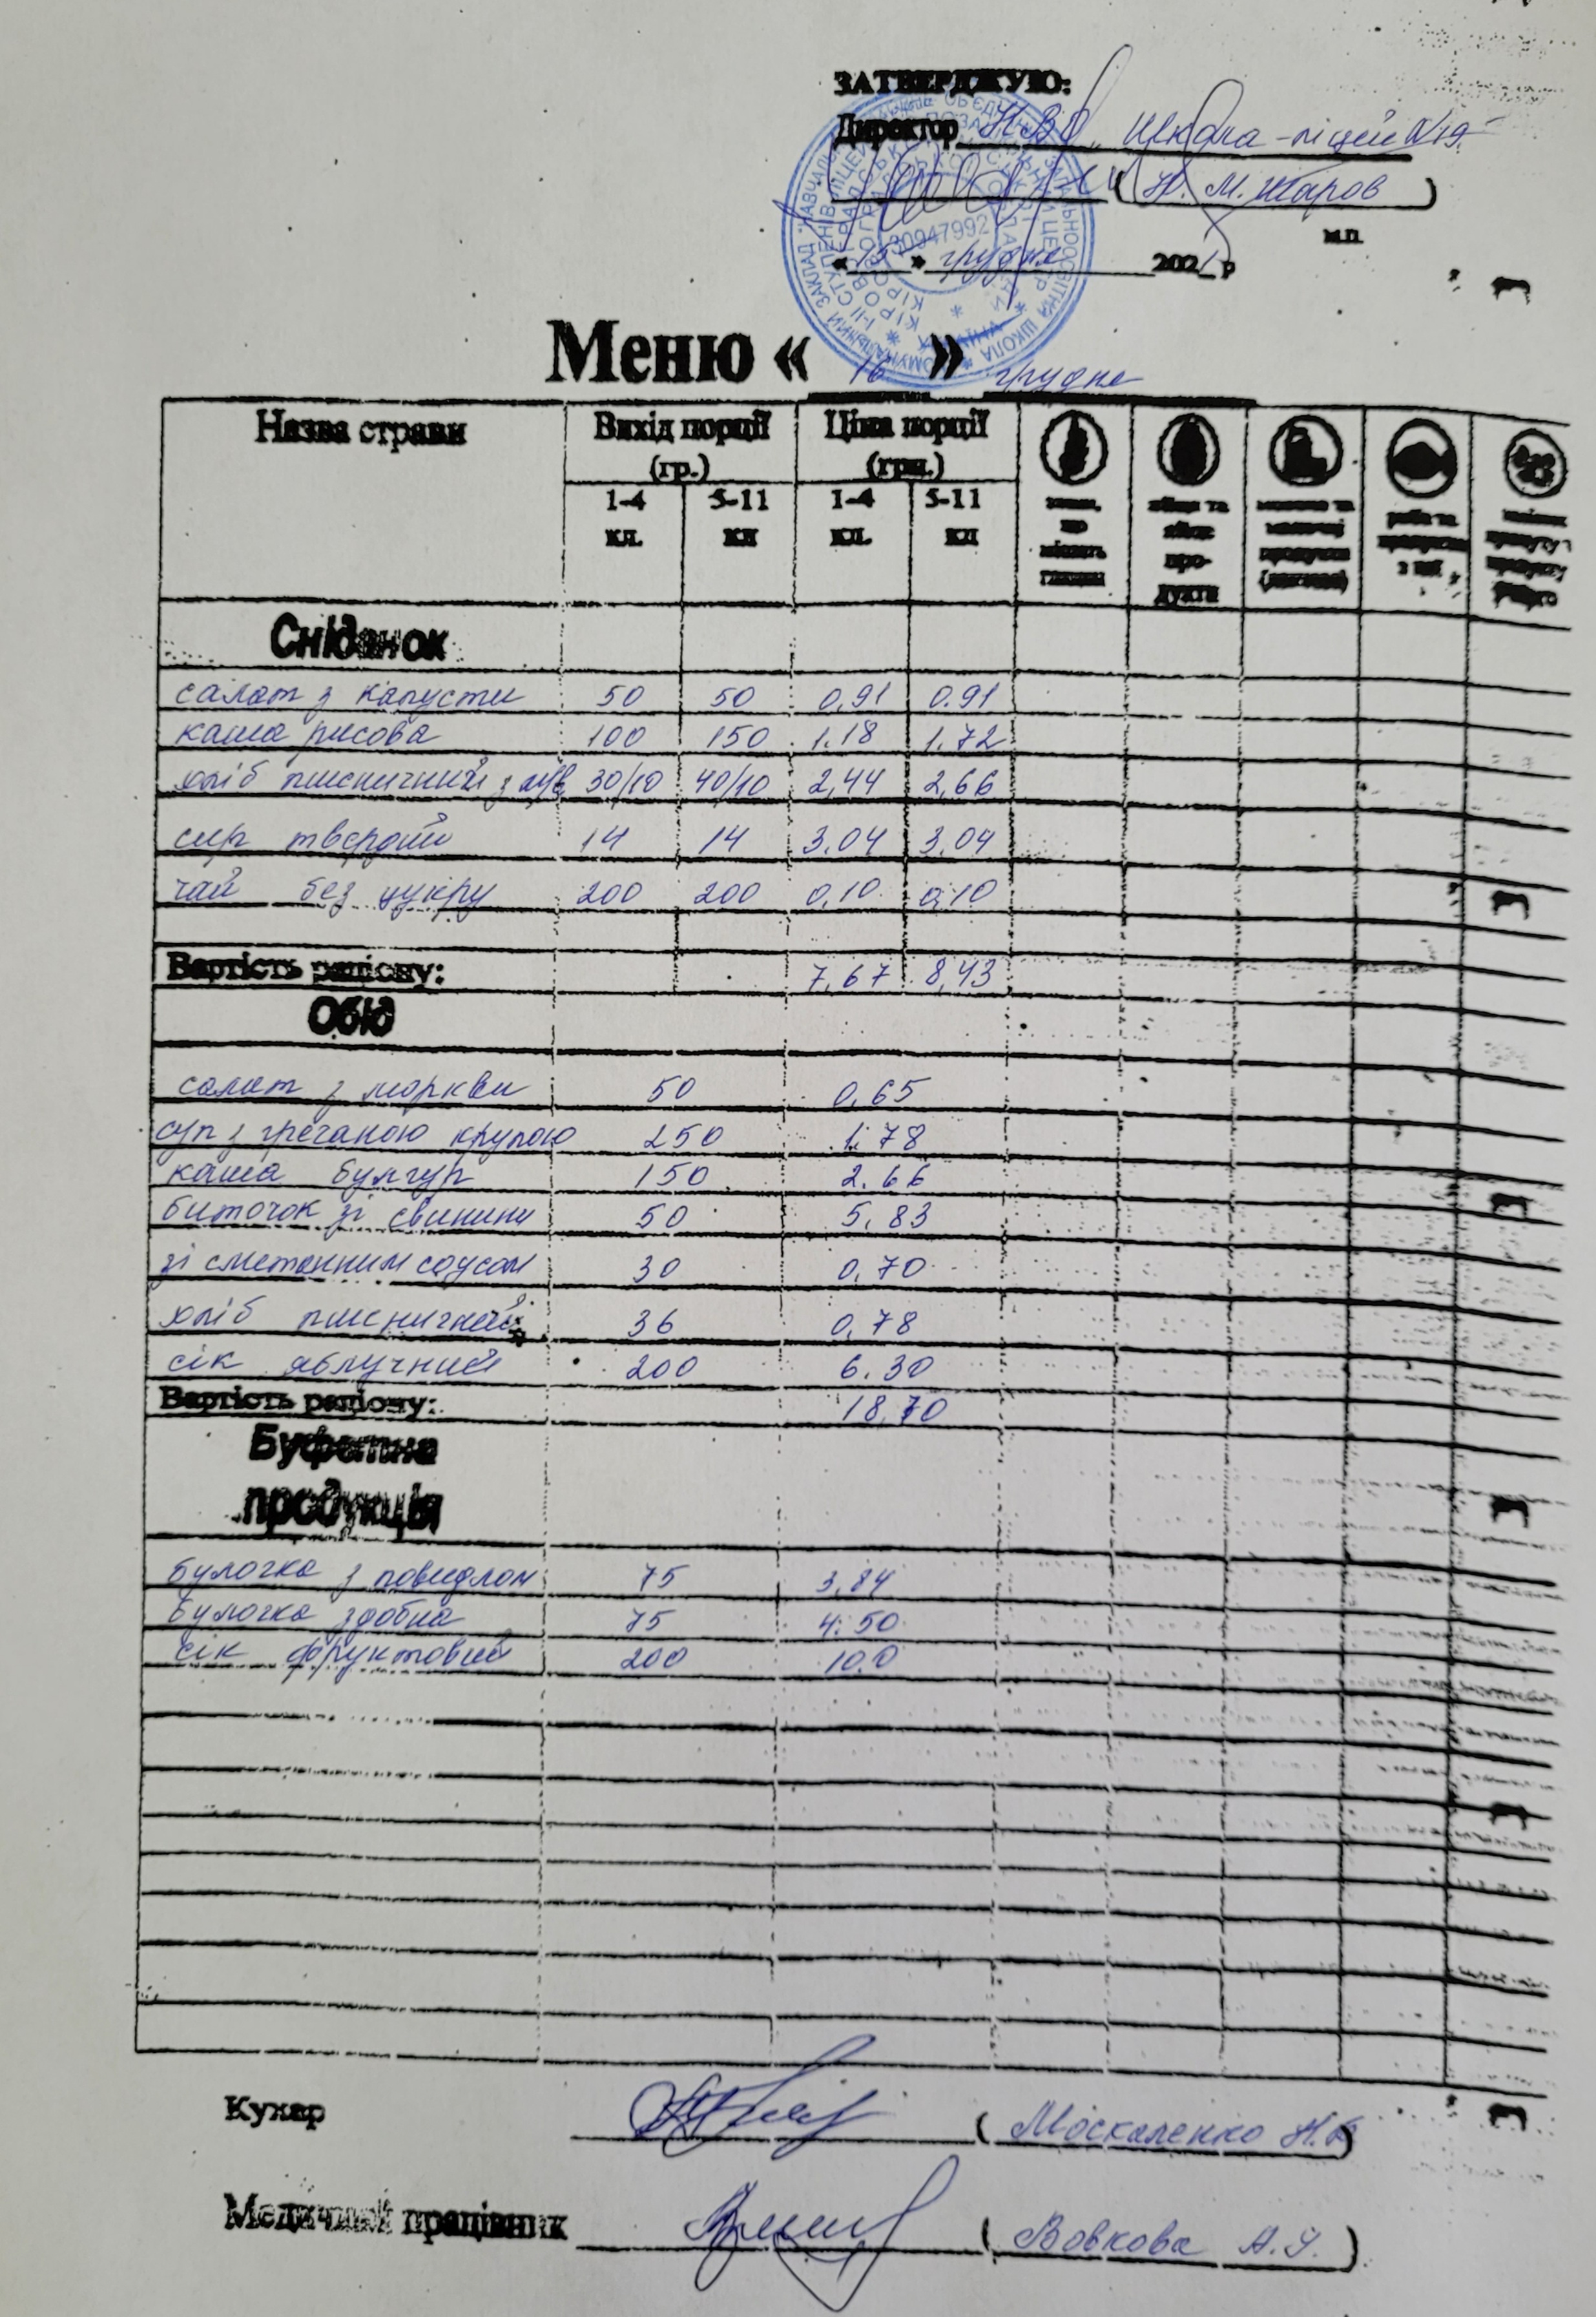 ЗАТВЕРДЖУЮ:
Директор НВО "Школа-ліцей №19"
(Ю. М. Жаров)
м.п.
« 15 » грудня 2021 р
30947992
Меню « 16 » грудня
Назва страви Вихід порції (гр.) Ціна порції (грн.)
1-4 кл. 5-11 кл 1-4 кл. 5-11 кл
злаки, що містять глютен
яйця та яйце про- дукти
молоко та молочні продукти (лактоза)
риба та продукти з неї
Сніданок
салат з капусти 50 50 0,91 0.91
каша рисова 100 150 1.18 1.72
хліб пшеничний з м/в 30/10 40/10 2,44 2,66
сир твердий 14 14 3.04 3.04
чай без цукру 200 200 0,10 0,10
Вартість раціону: 7,67 8,43
Обід
салат з моркви 50 0,65
суп з гречаною крупою 250 1.78
каша булгур 150 2.66
биточок зі свинини 50 5,83
зі сметанним соусом 30 0,70
хліб пшеничний 36 0,78
сік яблучний 200 6.30
Вартість раціону: 18,70
Буфетна
продукція
булочка з повидлом 75 3,84
булочка здобна 75 4.50
сік фруктовий 200 10.0
Кухар (Москаленко Н.В)
Медичний працівник (Вовкова А.Я.)